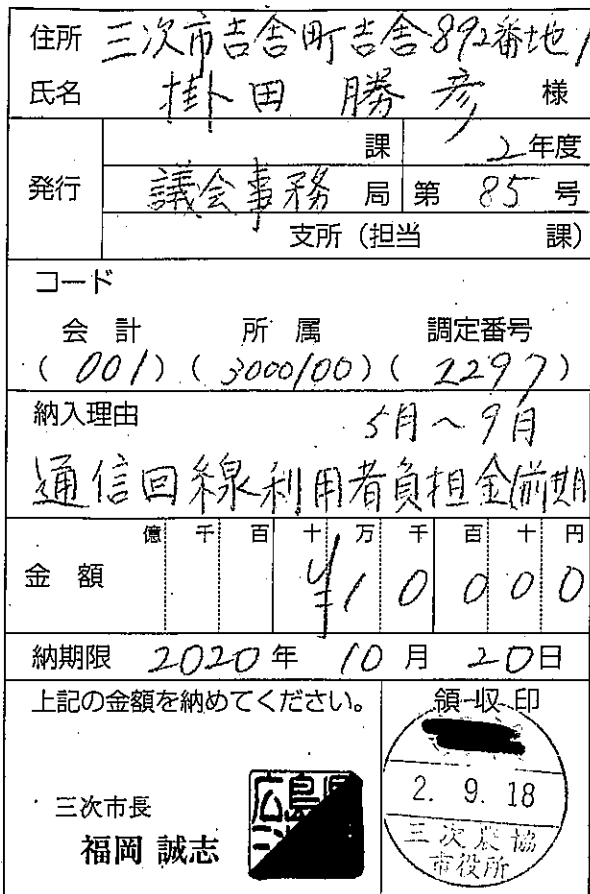 住所 三次市吉舎町吉舎892番地1
氏名 掛田 勝彦 様
発行
課 2年度
議会事務局 第 85 号
支所（担当 課）
コード
会計 所属 調定番号
(001) (3000100) (2297)
納入理由 5月～9月
通信回線利用者負担金前期
億 千 百 十 万 千 百 十 円
金額 ¥10000
納期限 2020年 10月 20日
上記の金額を納めてください。
三次市長
福岡 誠志
広島県
領収印
2. 9. 18
三次農協
市役所